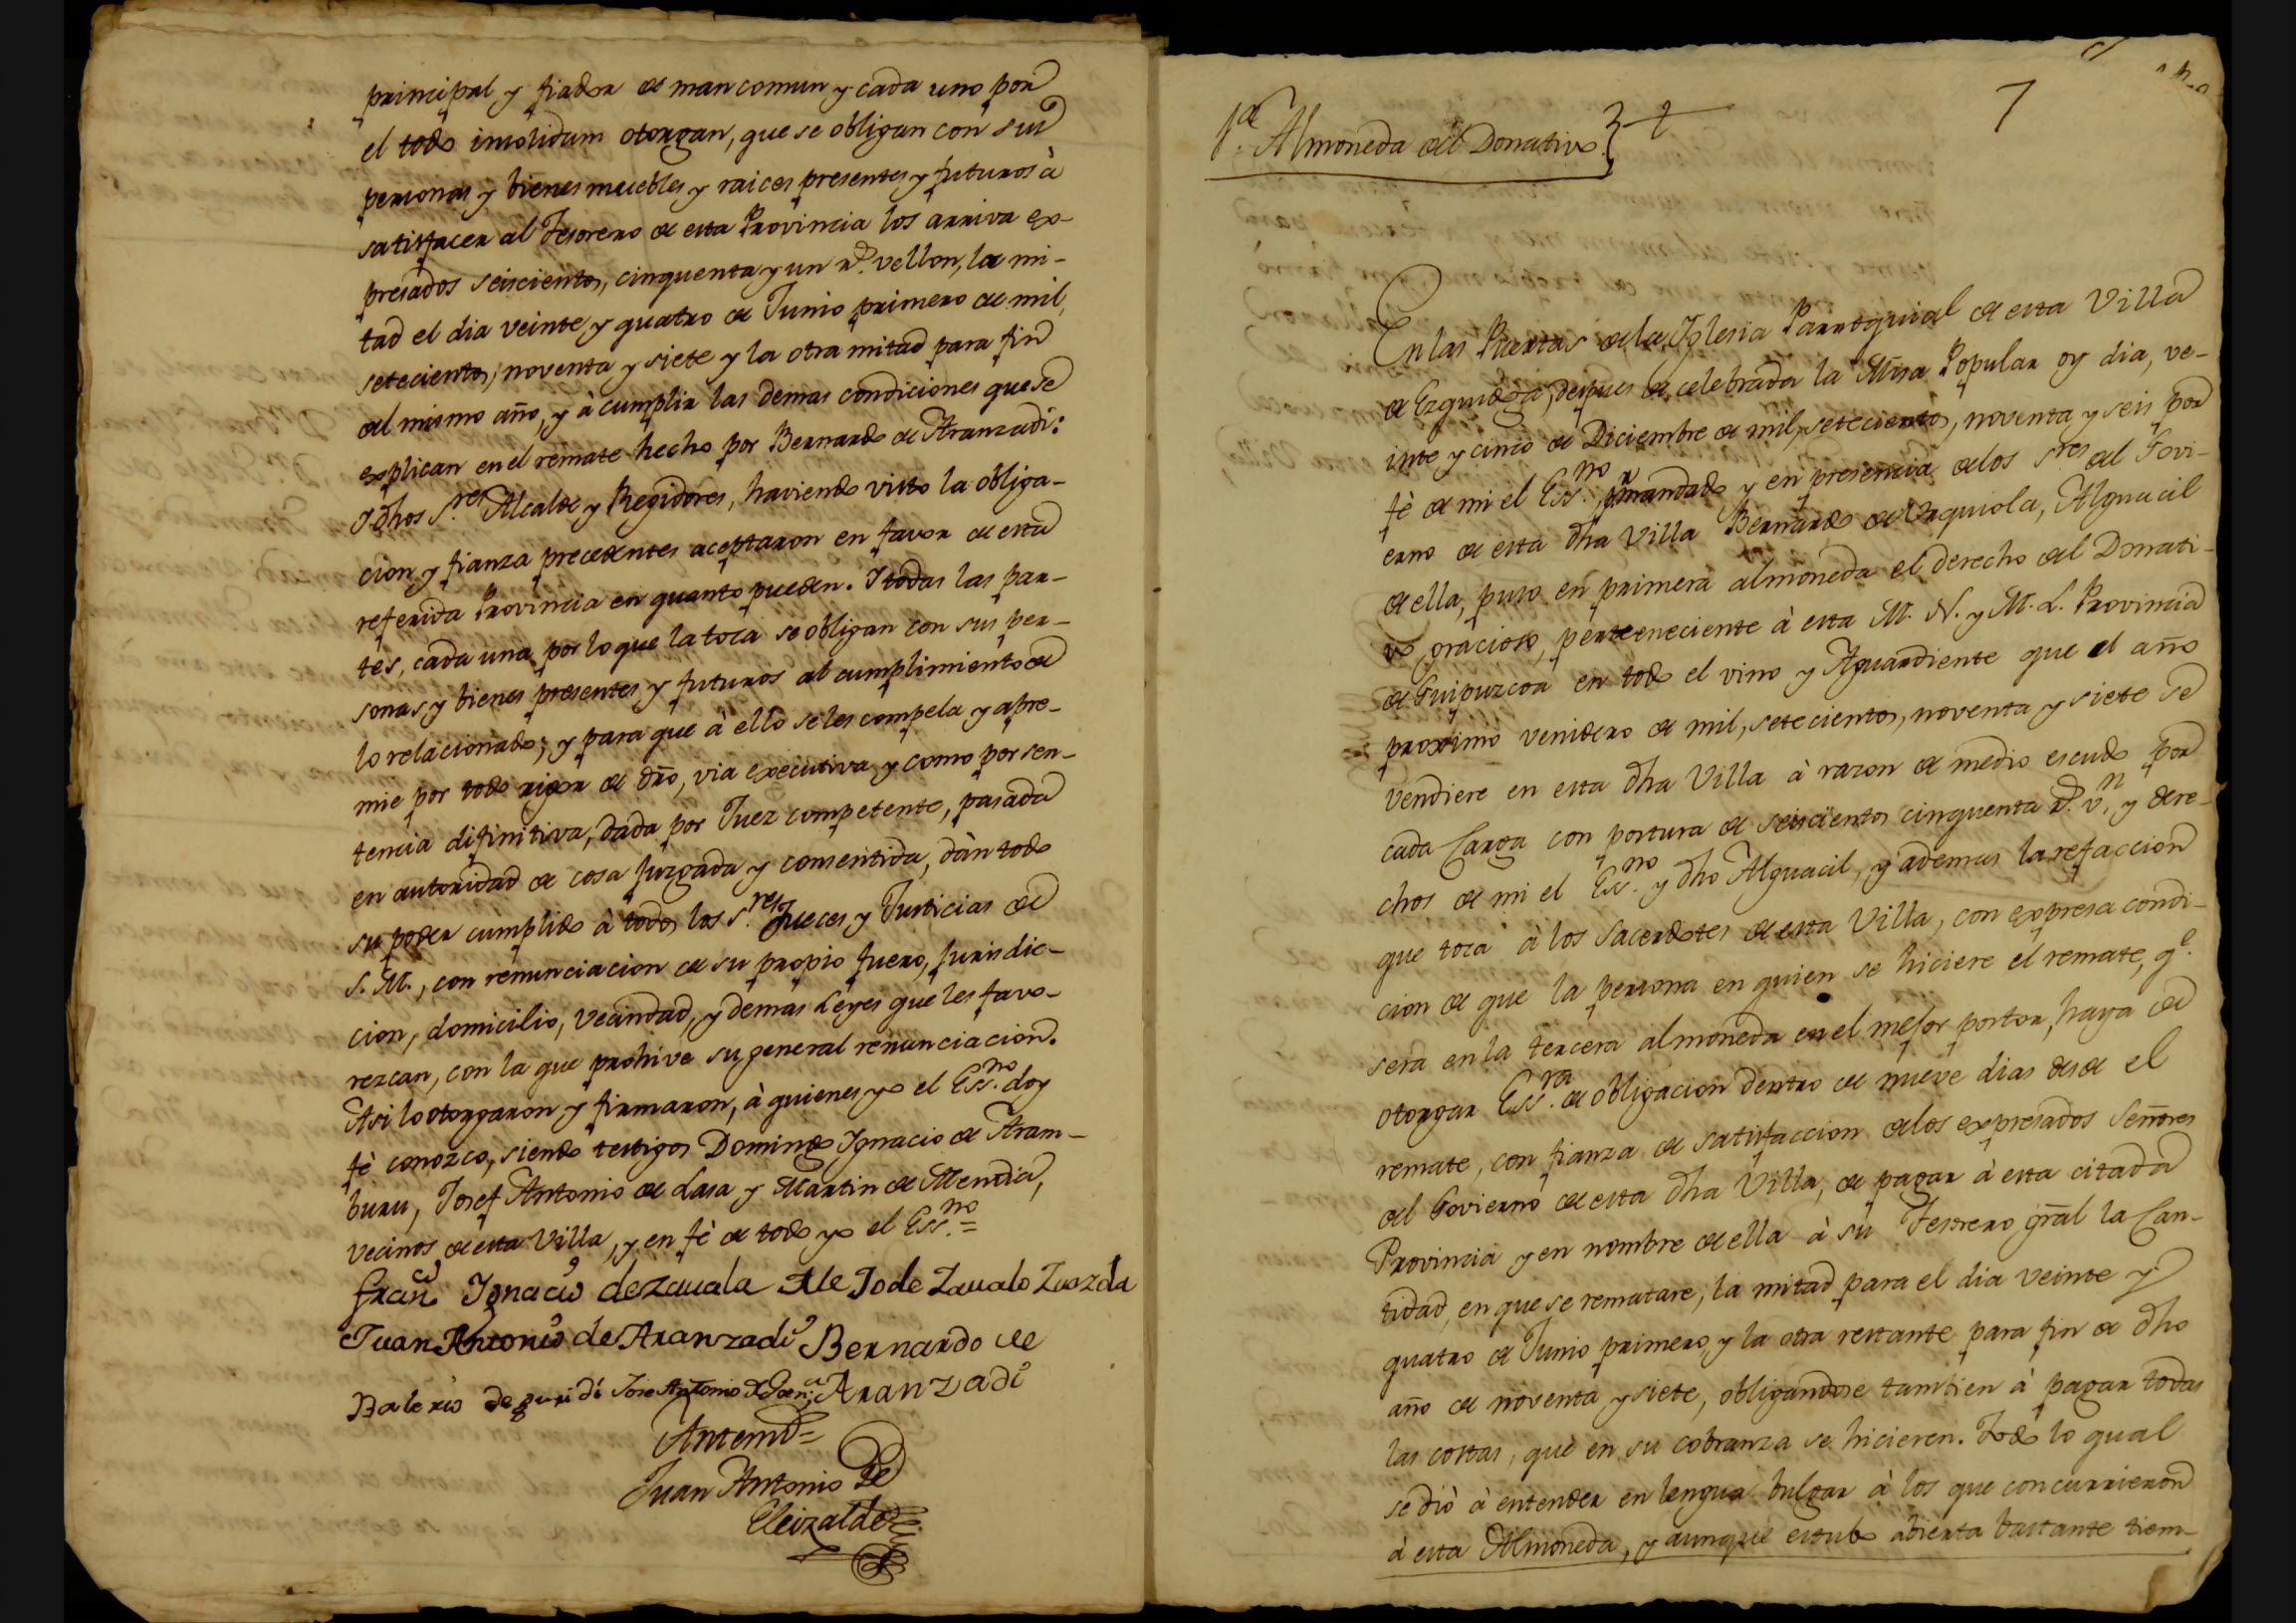 principal y fiador de mancomun y cada uno por
el todo insolidum otorgan, que se obligan con sus
personas y bienes muebles y raices presentes y futuros à
satisfacer al Tesorero de esta Provincia los arriva ex-
presados seiscientos, cinquenta y un r.s vellon, la mi-
tad el dia veinte, y quatro de Junio primero de mil,
setecientos, noventa y siete y la otra mitad para fin
del mismo año, y à cumplir las demas condiciones que se
explican en el remate hecho por Bernardo de Aranzadi:
Y dhos S.res Alcalde y Regidores, haviendo visto la obliga-
cion, y fianza precedentes aceptaron en favor de esta
referida Provincia en quanto pueden. Y todas las par-
tes, cada una por lo que la toca se obligan con sus per-
sonas, y bienes presentes y futuros al cumplimiento de
lo relacionado; y para que à ello se les compela y apre-
mie por todo rigor de dro, via executiva y como por sen-
tencia difinitiva, dada por Juez competente, pasada
en autoridad de cosa juzgada y consentida, dàn todo
su poder cumplido à todos los S.res Jueces y Justicias de
S. M., con renunciacion de su propio fuero, jurisdic-
cion, domicilio, vecindad, y demas Leyes que les favo-
rezcan, con la que prohive su general renunciacion.
Asi lo otorgaron y firmaron, à quienes yo el Ess.no doy
fè conozco, siendo testigos Domingo Ygnacio de Aram-
buru, Josef Antonio de Lasa y Martin de Mendia,
vecinos de esta Villa, y en fè de todo yo el Ess.no =
Fran.co Ignacio de Zauala Alejo de Zauala
Juan Antonio de Aranzadi Bernardo de
Balerio de guridi Jose Antonio de Aranzadi
Antemi =
Juan Antonio de
Eleizalde
1.a Almoneda del Donativo. 7
En las Puertas de la Iglesia Parroquial de esta Villa
de Ezquioga, despues de celebrada la Misa Popular oy dia, ve-
inte y cinco de Diciembre de mil, setecientos, noventa y seis por
fè de mi el Ess.no, mandado y en presencia de los S.res del Govi-
erno de esta dha Villa Bernardo de Urquiola, Alguacil
de ella, puso en primera almoneda el derecho del Donati-
vo, gracioso, perteneciente à esta M. N. y M. L. Provincia
de Guipuzcoa en todo el vino y Aguardiente que el año
proximo venidero de mil, setecientos, noventa y siete se
vendiere en esta dha Villa à razon de medio escudo por
cada Carga con postura de seiscientos cinquenta r.s v.n, y dere-
chos de mi el Ess.no y dho Alguacil, y ademas la refaccion
que toca à los Sacerdotes de esta Villa, con expresa condi-
cion de que la persona en quien se hiciere el remate, q.e
serà en la tercera almoneda en el mejor postor, haya de
otorgar Ess.ra de obligacion dentro de nueve dias desde el
remate, con fianza de satisfaccion de los expresados Señores
del Govierno de esta dha Villa, de pagar à esta citada
Provincia y en nombre de ella à su Tesorero gral la Can-
tidad, en que se rematare, la mitad para el dia veinte y
quatro de Junio primero, y la otra restante para fin de dho
año de noventa y siete, obligandose tambien à pagar todas
las costas, que en su cobranza se hicieren. Todo lo qual
se diò à entender en lengua bulgar à los que concurrieron
à esta Almoneda, y aunque estubo abierta bastante tiem-